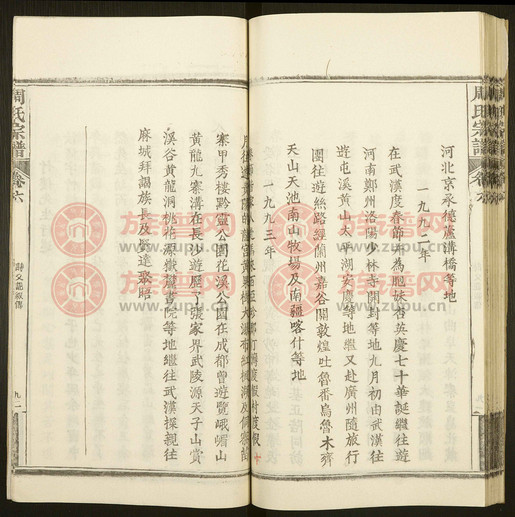 周氏宗譜
卷六
河北京承德蘆溝橋等地
一九九二年
在武漢度春節並為胞妹杏英慶七十華誕繼往遊
河南鄭州洛陽少林寺開封等地九月初由武漢往
遊屯溪黃山太平湖安慶等地繼又赴廣州隨旅行
團往遊絲路經蘭州嘉谷關敦煌吐魯番烏魯木齊
天山天池南山牧場及南疆喀什等地
一九九三年
寨甲秀樓黔靈公園花溪公園在成都曾遊覽峨嵋山
黃龍九寨溝在長沙遊歷了張家界武陵源天子山賞
溪谷黃龍洞桃花源嶽麓書院等地繼往武漢探親往
麻城拜謁族長及賢達聚晤
周氏宗譜
卷六
九一
族譜网
www.zupu.cn